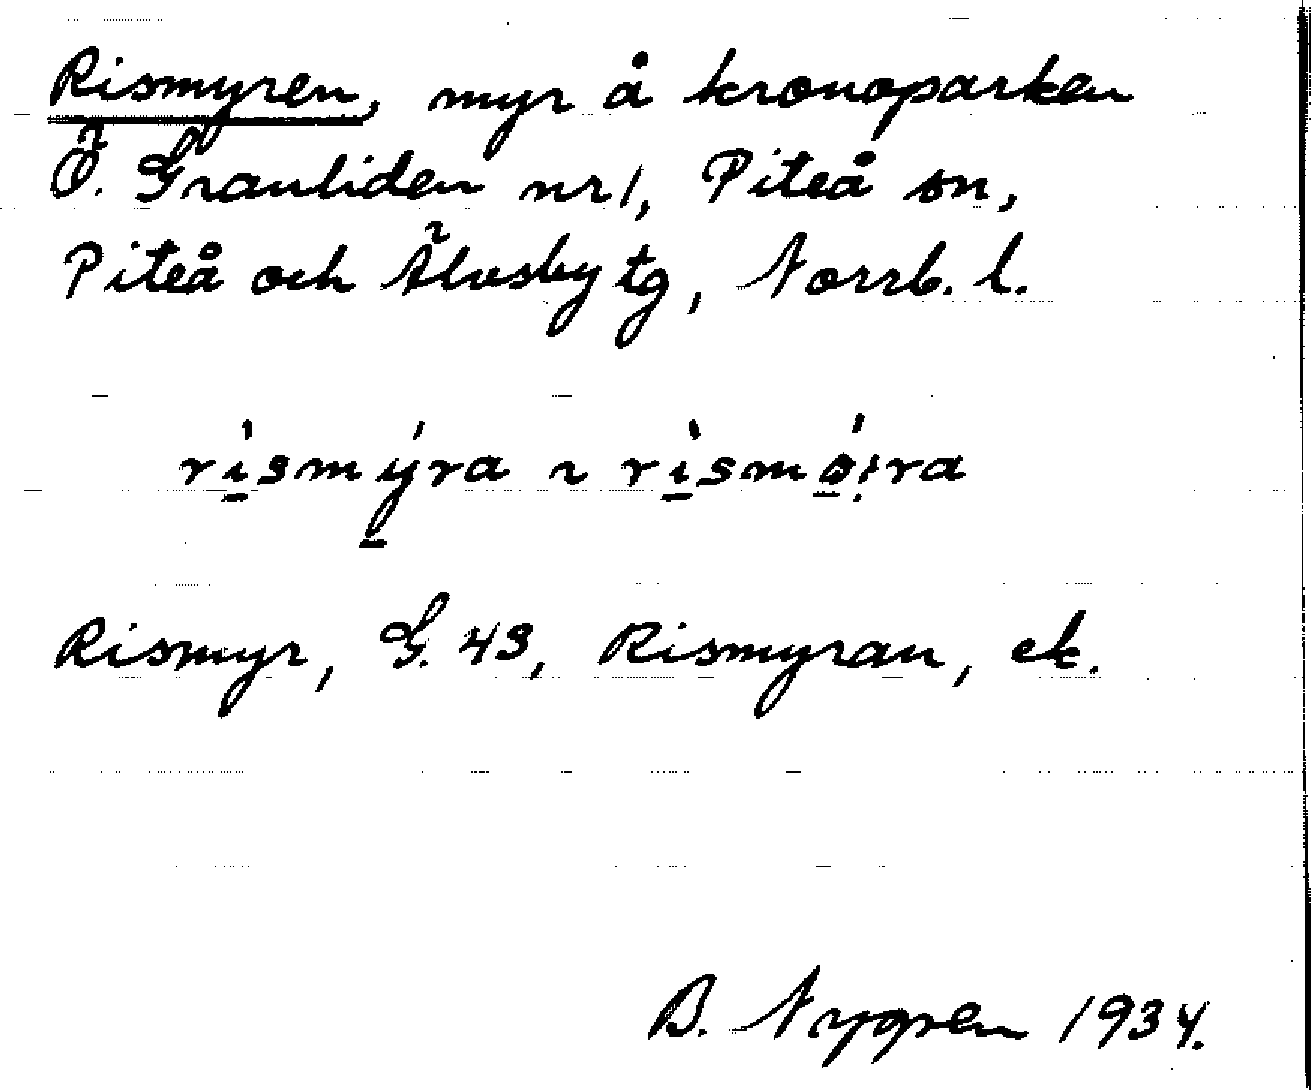 Rismyren, myr å kronoparken
Ö. Granliden nr 1, Piteå sn,
Piteå och Älvsby tg, Norrb. l.
rìsmýra ~ rìsmó:ra
Rismyr, G. 43, Rismyran, ek.
B. Nygren 1934.